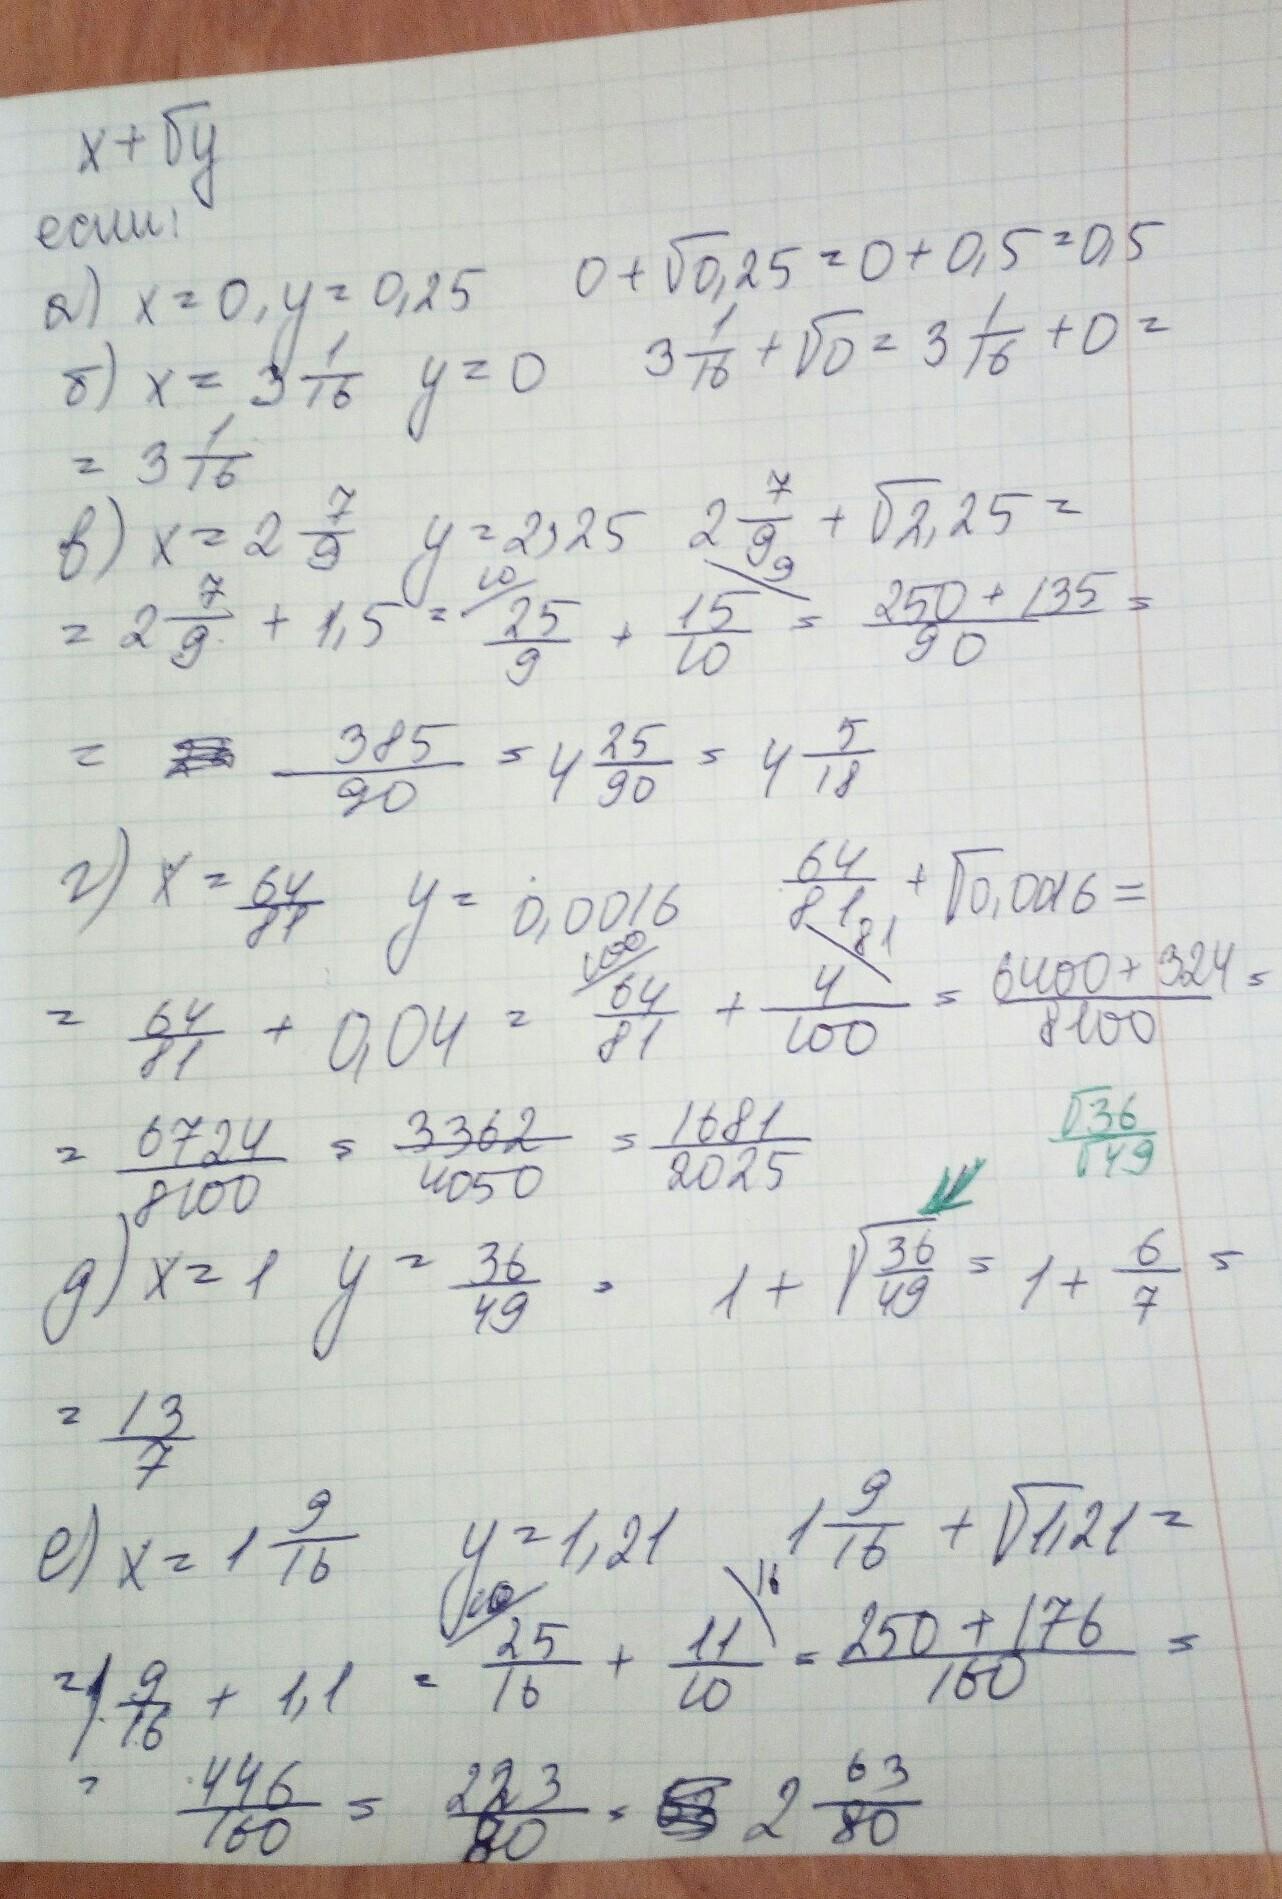 x+√y
если:
а) x=0, y=0,25 0+√0,25=0+0,5=0,5
б) x=3 1/16 y=0 3 1/16+√0=3 1/16+0=
=3 1/16
в) x=2 7/9 y=2,25 2 7/9+√2,25=
=2 7/9+1,5= 10/ 25/9 + 15/10 \9 = (250+135)/90 =
= 385/90 = 4 25/90 = 4 5/18
г) x=64/81 y=0,0016 64/81+√0,0016=
= 64/81+0,04= 100/ 64/81 + 4/100 \81 = (6400+324)/8100 =
= 6724/8100 = 3362/4050 = 1681/2025 √36/√49
д) x=1 y=36/49 = 1+√(36/49)=1+6/7=
= 13/7
е) x=1 9/16 y=1,21 1 9/16+√1,21=
=1 9/16+1,1= 10/ 25/16 + 11/10 \16 = (250+176)/160 =
= 446/160 = 223/80 = 2 63/80